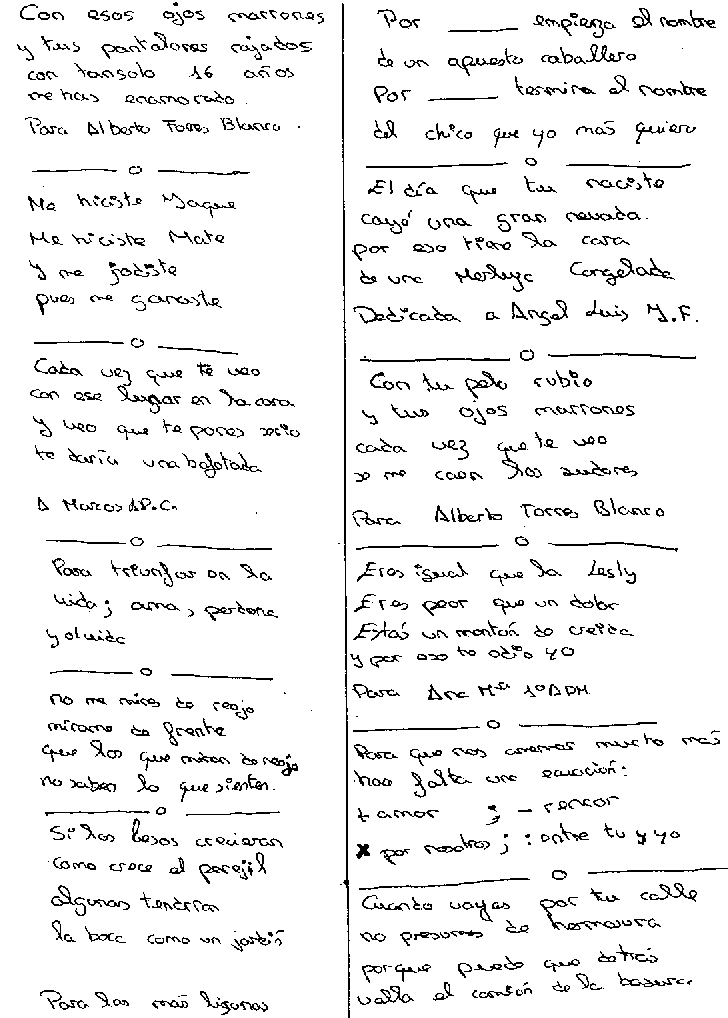 Con esos ojos marrones
y tus pantalones rajados
con tansolo 16 años
me has enamorado.
Para Alberto Torres Blanco.
Me hiciste Jaque
Me hiciste Mate
y me jodiste
pues me ganaste
Cada vez que te veo
con ese lugar en la cara
y veo que te pones serio
te daría una bofotada
A Marcos A.P.C.
Para triunfar en la
vida; ama, perdona
y olvida
no me mires de reojo
mirame de frente
que los que miran de reojo
no saben lo que sienten.
Si los besos crecieran
como crece el perejil
algunas tendrían
la boca como un jardín
Para las más lígunas
Por ______ empieza el nombre
de un apuesto caballero
Por ______ termina el nombre
del chico que yo más quiero
El día que tu naciste
cayó una gran nevada.
por eso tiene la cara
de una Merluza Congelada
Dedicada a Angel Luis J.F.
Con tu pelo rubio
y tus ojos marrones
cada vez que te veo
se me caen los sudores
Para Alberto Torres Blanco
Eres igual que la Lesly
Eres peor que un dolor
Estás un montón de creida
y por eso te odio yo
Para Ana Mª 1º ADM
Para que nos amemos mucho más
hace falta una ecuación:
+ amor ; - rencor
x por nosotros ; : entre tu y yo
Cuando vayas por tu calle
no presumas de hermosura
porque puede que detrás
valla el camión de la basura.